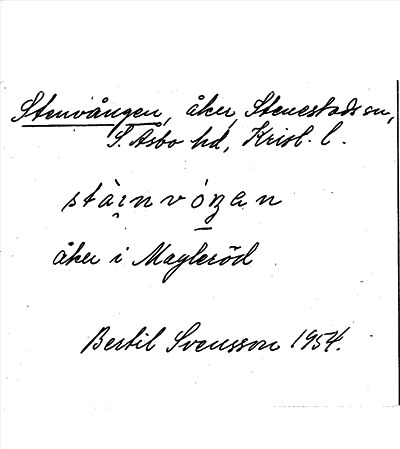 Stenvången, åker, Stenestads sn,
S. Åsbo hd, Krist. l.
stàinvóŋan
åker i Magleröd
Bertil Svensson 1954.